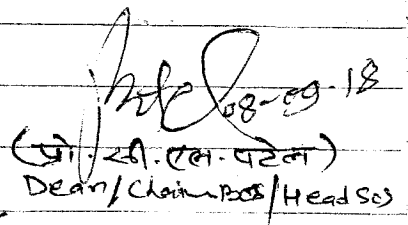 08-09-18
(प्रो. सी. एल. पटेल)
Dean/Chairm BOS/Head SOS